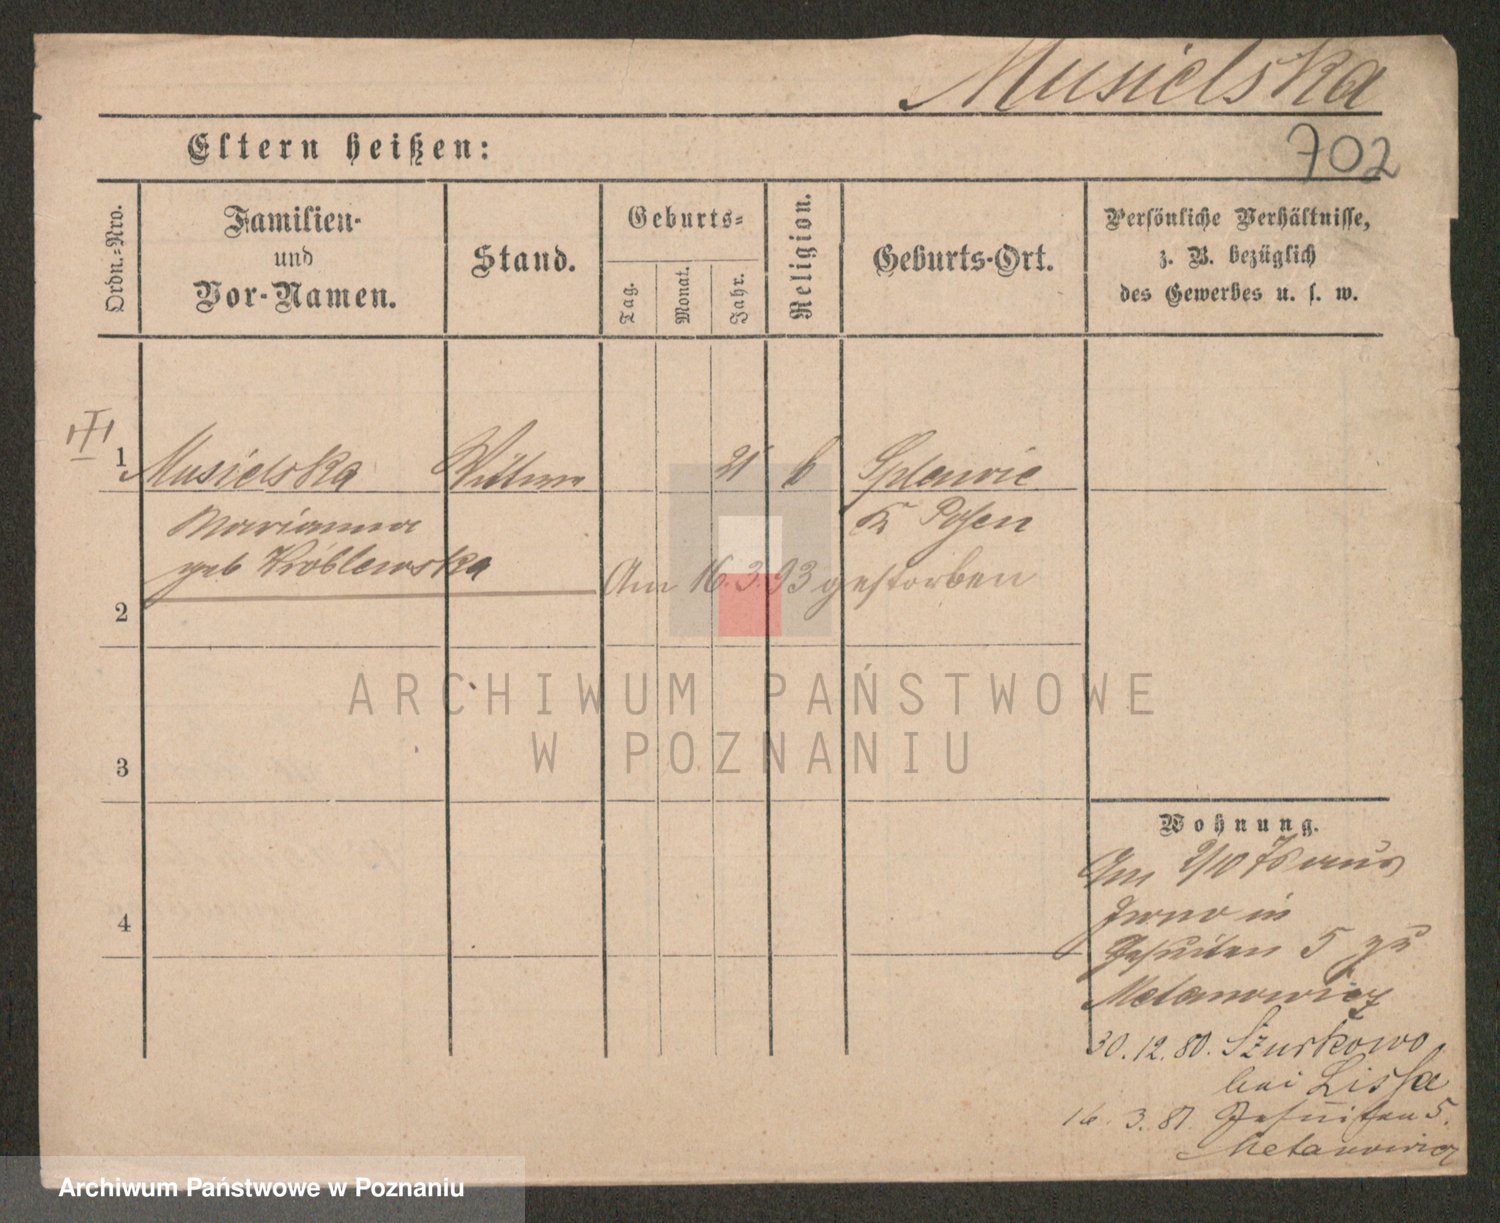 Musielska
702
Eltern heißen:
Ordn.-Nro.
Familien-
und
Vor-Namen.
Stand.
Geburts-
Tag.
Monat.
Jahr.
Religion.
Geburts-Ort.
Persönliche Verhältnisse,
z. B. bezüglich
des Gewerbes u. s. w.
1 Musielska Wittwe 21 k
Marianna
K Posen
geb Wróblewska
Am 16.3.93 gestorben
2
ARCHIWUM PAŃSTWOWE
W POZNANIU
3
Wohnung.
Am 2/10 78 aus
in
4
Jesuiten 5 zu
Metanowicz
30.12.80. Szurkowo
bei Lissa
16.3.81. Jesuiten 5.
Metanowicz
Archiwum Państwowe w Poznaniu